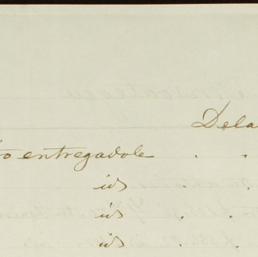 Dela
o entregadole . .
id .
id . .
id . .